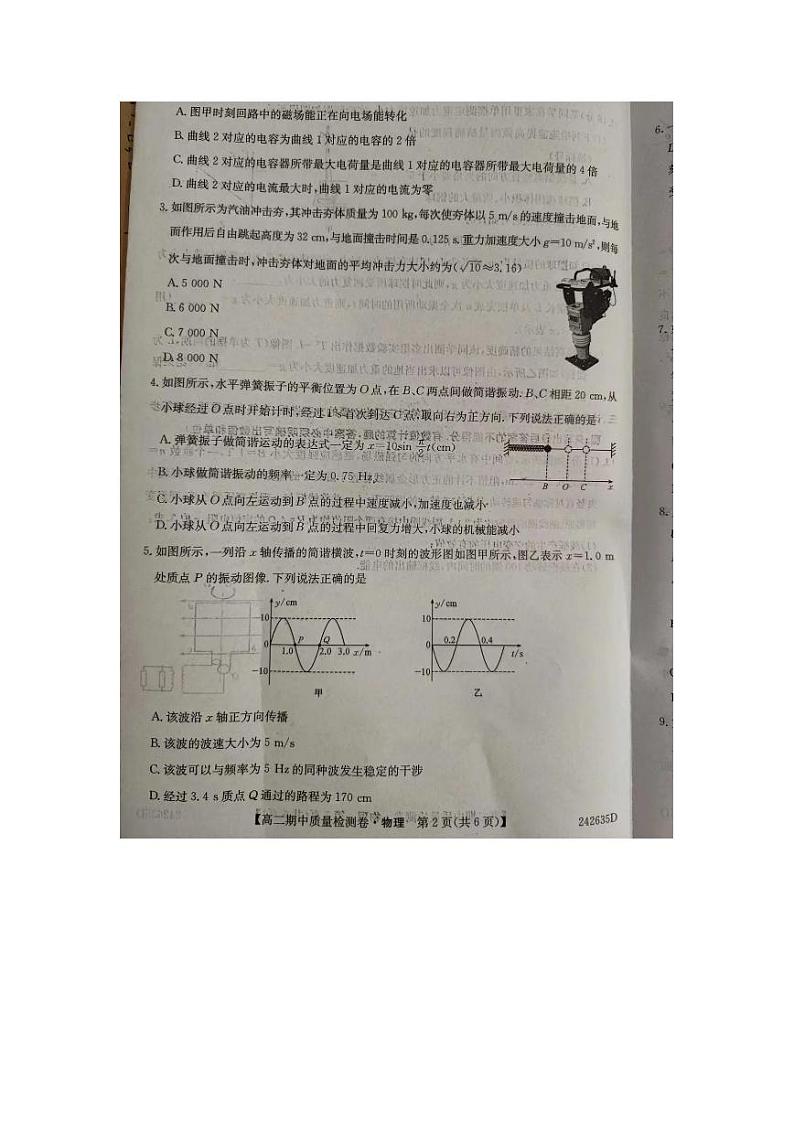 A. 图甲时刻回路中的磁场能正在向电场能转化
B. 曲线 2 对应的电容为曲线 1 对应的电容的 2 倍
C. 曲线 2 对应的电容器所带最大电荷量是曲线 1 对应的电容器所带最大电荷量的 4 倍
D. 曲线 2 对应的电流最大时,曲线 1 对应的电流为零
3. 如图所示为汽油冲击夯,其冲击夯体质量为 100 kg,每次使夯体以 5 m/s 的速度撞击地面,与地
面作用后自由跳起高度为 32 cm,与地面撞击时间是 0.125 s.重力加速度大小 g=10 m/s²,则每
次与地面撞击时,冲击夯体对地面的平均冲击力大小约为(√10≈3.16)
A. 5 000 N
B. 6 000 N
C. 7 000 N
D. 8 000 N
4. 如图所示,水平弹簧振子的平衡位置为 O 点,在 B、C 两点间做简谐振动. B、C 相距 20 cm,从
小球经过 O 点时开始计时,经过 1 s 首次到达 C 点,取向右为正方向. 下列说法正确的是
A. 弹簧振子做简谐运动的表达式一定为 x=10sin t(cm)
B. 小球做简谐振动的频率一定为 0.75 Hz
B O C x
C. 小球从 O 点向左运动到 B 点的过程中速度减小,加速度也减小
D. 小球从 O 点向左运动到 B 点的过程中回复力增大,小球的机械能减小
5. 如图所示,一列沿 x 轴传播的简谐横波,t=0 时刻的波形图如图甲所示,图乙表示 x=1.0 m
处质点 P 的振动图像. 下列说法正确的是
y/cm
10
0
-10
P Q
1.0 2.0 3.0 x/m
甲
y/cm
10
0
-10
0.2 0.4
t/s
乙
A. 该波沿 x 轴正方向传播
B. 该波的波速大小为 5 m/s
C. 该波可以与频率为 5 Hz 的同种波发生稳定的干涉
D. 经过 3.4 s 质点 Q 通过的路程为 170 cm
【高二期中质量检测卷·物理 第 2 页(共 6 页)】
242635D
6.
7.
8.
9.